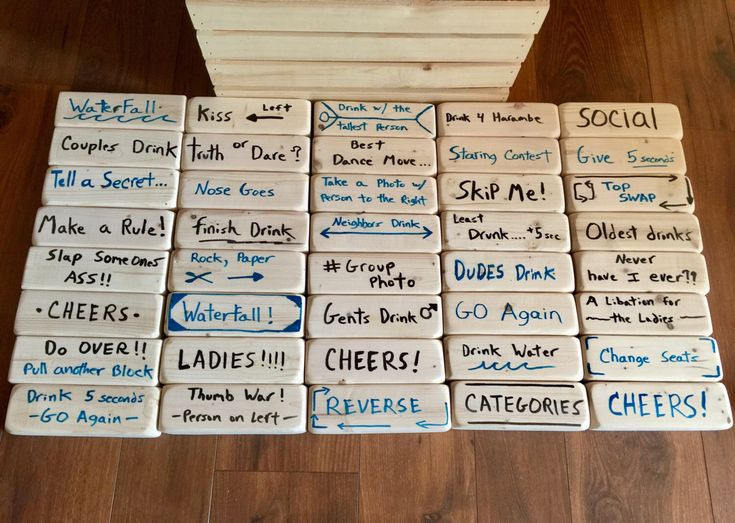 WaterFall
Kiss Left
Drink w/ the
tallest Person
Drink 4 Harambe
SOCIAL
Couples Drink
Truth or Dare?
Best
Dance Move...
Staring Contest
Give 5 seconds
Tell a Secret...
Nose Goes
Take a Photo w/
Person to the Right
SKiP Me!
TOP
SWAP
Make a Rule!
finish Drink
Neighbors Drink
Least
Drunk....+5 sec
Oldest drinks
Slap Someones
ASS!!
Rock, Paper
#Group
Photo
DUDES Drink
Never
have I ever??
CHEERS
Waterfall!
Gents Drink
GO Again
A Libation for
the Ladies
Do OVER!!
Pull another Block
LADIES!!!!
CHEERS!
Drink Water
Change Seats
Drink 5 seconds
-GO Again-
Thumb War!
-Person on Left-
REVERSE
CATEGORIES
CHEERS!